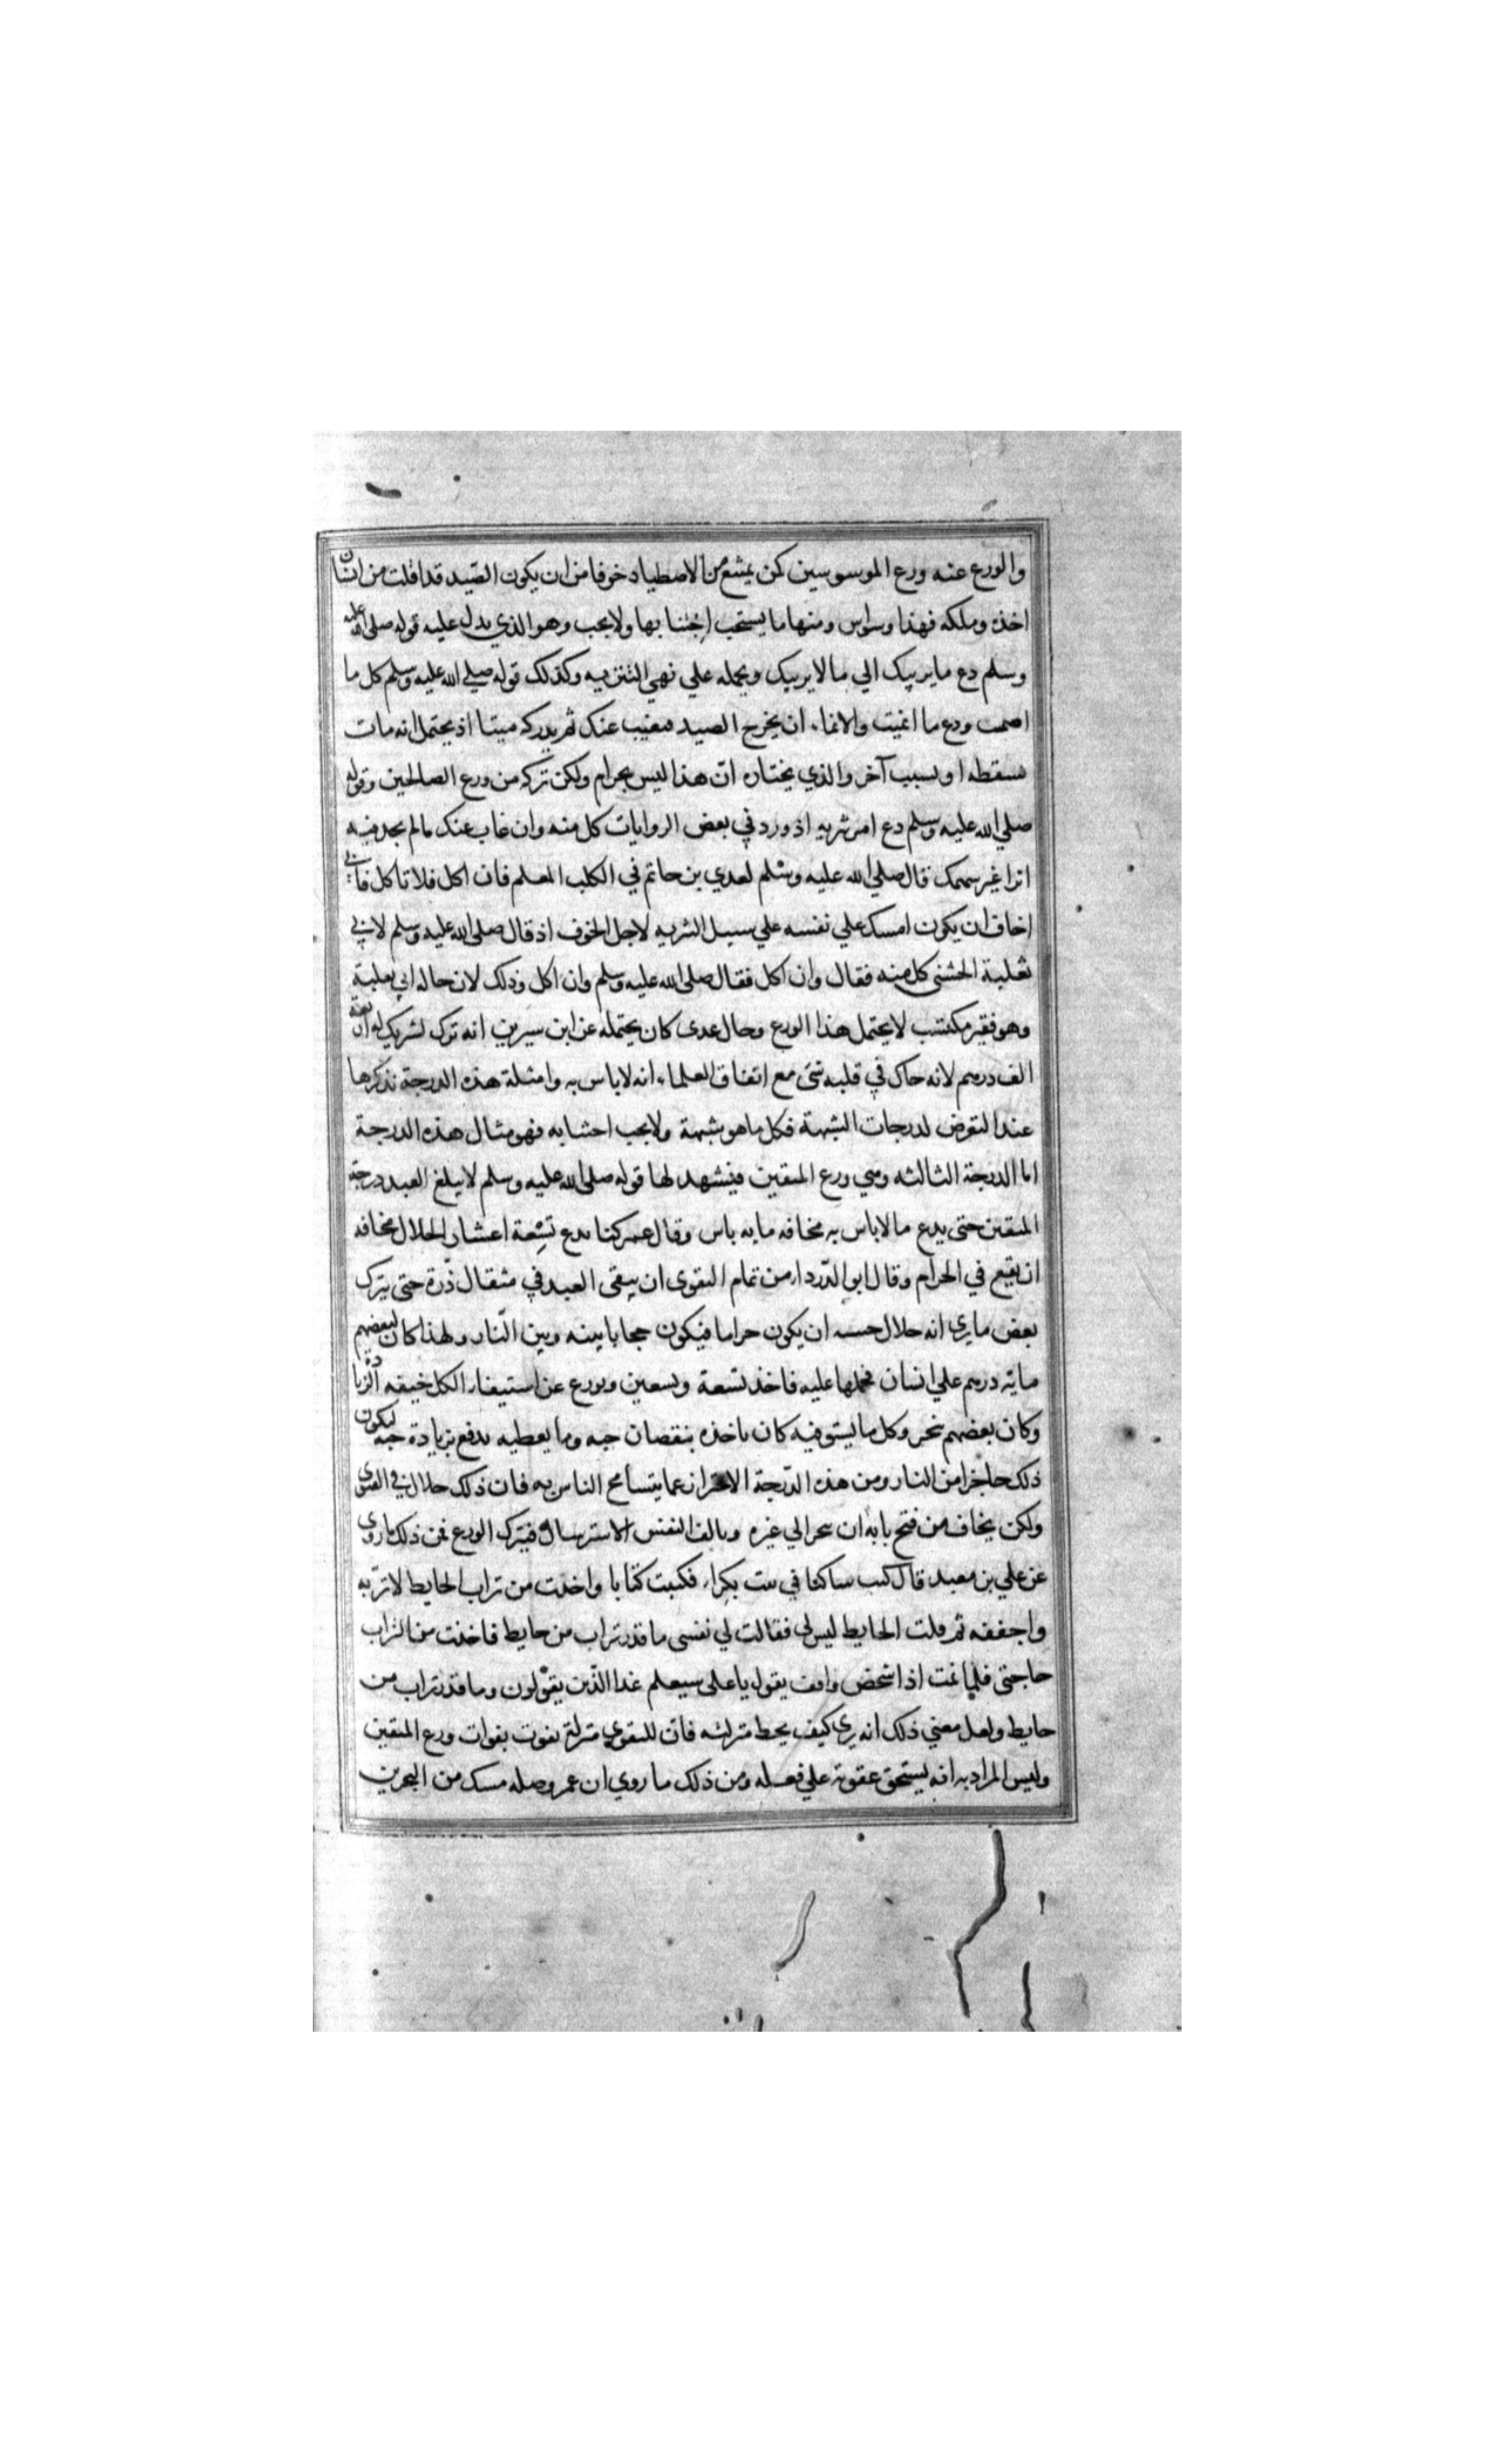 والورع عنه ورع الموسوسين كمن يمتنع من الاصطياد خوفا من ان يكون الصّيد قد افلت من انسان
اخذه وملكه فهذا وسواس ومنها ما يستحب اجتنابها ولا يجب وهو الذي يدل عليه قوله صلى الله عليه
وسلم دع ما يريبك الي ما لا يريبك ويحمله علي نهي التنزيه وكذلك قوله صلي الله عليه وسلم كل ما
اصمت ودع ما انميت والانماء ان يخرج الصيد فيغيب عنك ثم يدركه ميتا اذ يحتمل انه مات
بسقطه او بسبب آخر والذي يختاره انّ هذا ليس بحرام ولكن تركه من ورع الصالحين وقوله
صلي الله عليه وسلم دع امر تنزيه اذ ورد في بعض الروايات كل منه وان غاب عنك ما لم يجد فيه
اثرا غير سهمك قال صلي الله عليه وسلم لعدي بن حاتم في الكلب المعلم فان اكل فلا تاكل فاني
اخاف ان يكون امسك علي نفسه علي سبيل التنزيه لاجل الخوف اذ قال صلى الله عليه وسلم لابي
ثعلبة الخشنى كل منه فقال وان اكل فقال صلى الله عليه وسلم وان اكل وذلك لان حاله ابي ثعلبة
وهو فقير مكتسب لا يحتمل هذا الورع وحال عدى كان يحتمله عن ابن سيرين انه ترك لشريك له اربعة
الف درهم لانه حاك في قلبه شئ مع اتفاق العلماء انه لا باس به وامثلة هذه الدرجة نذكرها
عند التعرض لدرجات الشبهة فكل ما هو شبهة ولا يجب اجتنابه فهو مثال هذه الدرجة
اما الدرجة الثالثه وهي ورع المتقين فيشهد لها قوله صلى الله عليه وسلم لا يبلغ العبد درجة
المتقين حتى يدع ما لا باس به مخافه ما به باس وقال عمر كنا ندع تسعة اعشار الحلال مخافه
ان يقع في الحرام وقال ابو الدّرداء من تمام التقوى ان يتقى العبد في مثقال ذرة حتى يترك
بعض ما يرى انه حلال خشيه ان يكون حراما فيكون حجابا بينه وبين النّار ولهذا كان لبعضهم
مايه درهم علي انسان فحملها عليه فاخذ تسعة وتسعين وتورع عن استيفاء الكل خيفه الزيادة
وكان بعضهم يتحر وكل ما يستوفيه كان ياخذه بنقصان حبه وما يعطيه يدفع بزيادة حبه ليكون
ذلك حاجزا من النار ومن هذه الدّرجة الاحتراز عما يتسامح الناس به فان ذلك حلال في الفتوى
ولكن يخاف من فتح بابه ان ينجر الي غيره وتالف النفس الاسترسال فيترك الورع فمن ذلك ما روى
عن علي بن معبد قال كنت ساكنا في بيت بكراء فكتبت كتابا واخذت من تراب الحايط لاترّبه
واجففه ثم قلت الحايط ليس لى فقالت لي نفسى ما قدر تراب من حايط فاخذت من التراب
حاجتى فلما نمت اذا شخص واقف يقول يا على سيعلم غدا الّذين يقولون وما قدر تراب من
حايط ولعل معني ذلك انه يرى كيف يحط منزلته فان للتقوى منزلة تفوت بفوات ورع المتقين
وليس المراد به انه يستحق عقوبة علي فعله ومن ذلك ما روي ان عمر وصله مسك من البحرين